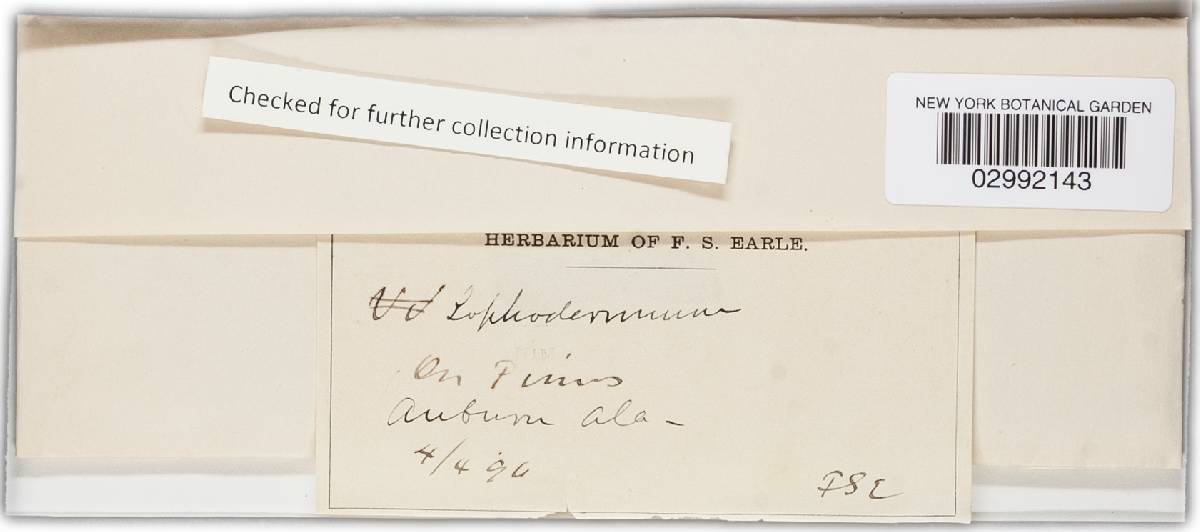 Checked for further collection information
NEW YORK BOTANICAL GARDEN
02992143
HERBARIUM OF F. S. EARLE.
Lophodermium
On Pinus
Auburn Ala-
4/4 96
FSE